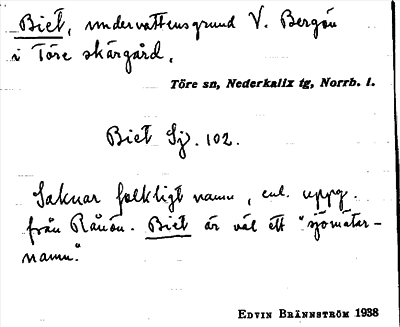 Biet, undervattensgrund V. Bergön
i Töre skärgård.
Töre sn, Nederkalix tg, Norrb. l.
Biet Sj. 102.
Saknar folkligt namn, enl. uppg.
från Rånön. Biet är väl ett "sjömätar-
namn."
EDVIN BRÄNNSTRÖM 1938